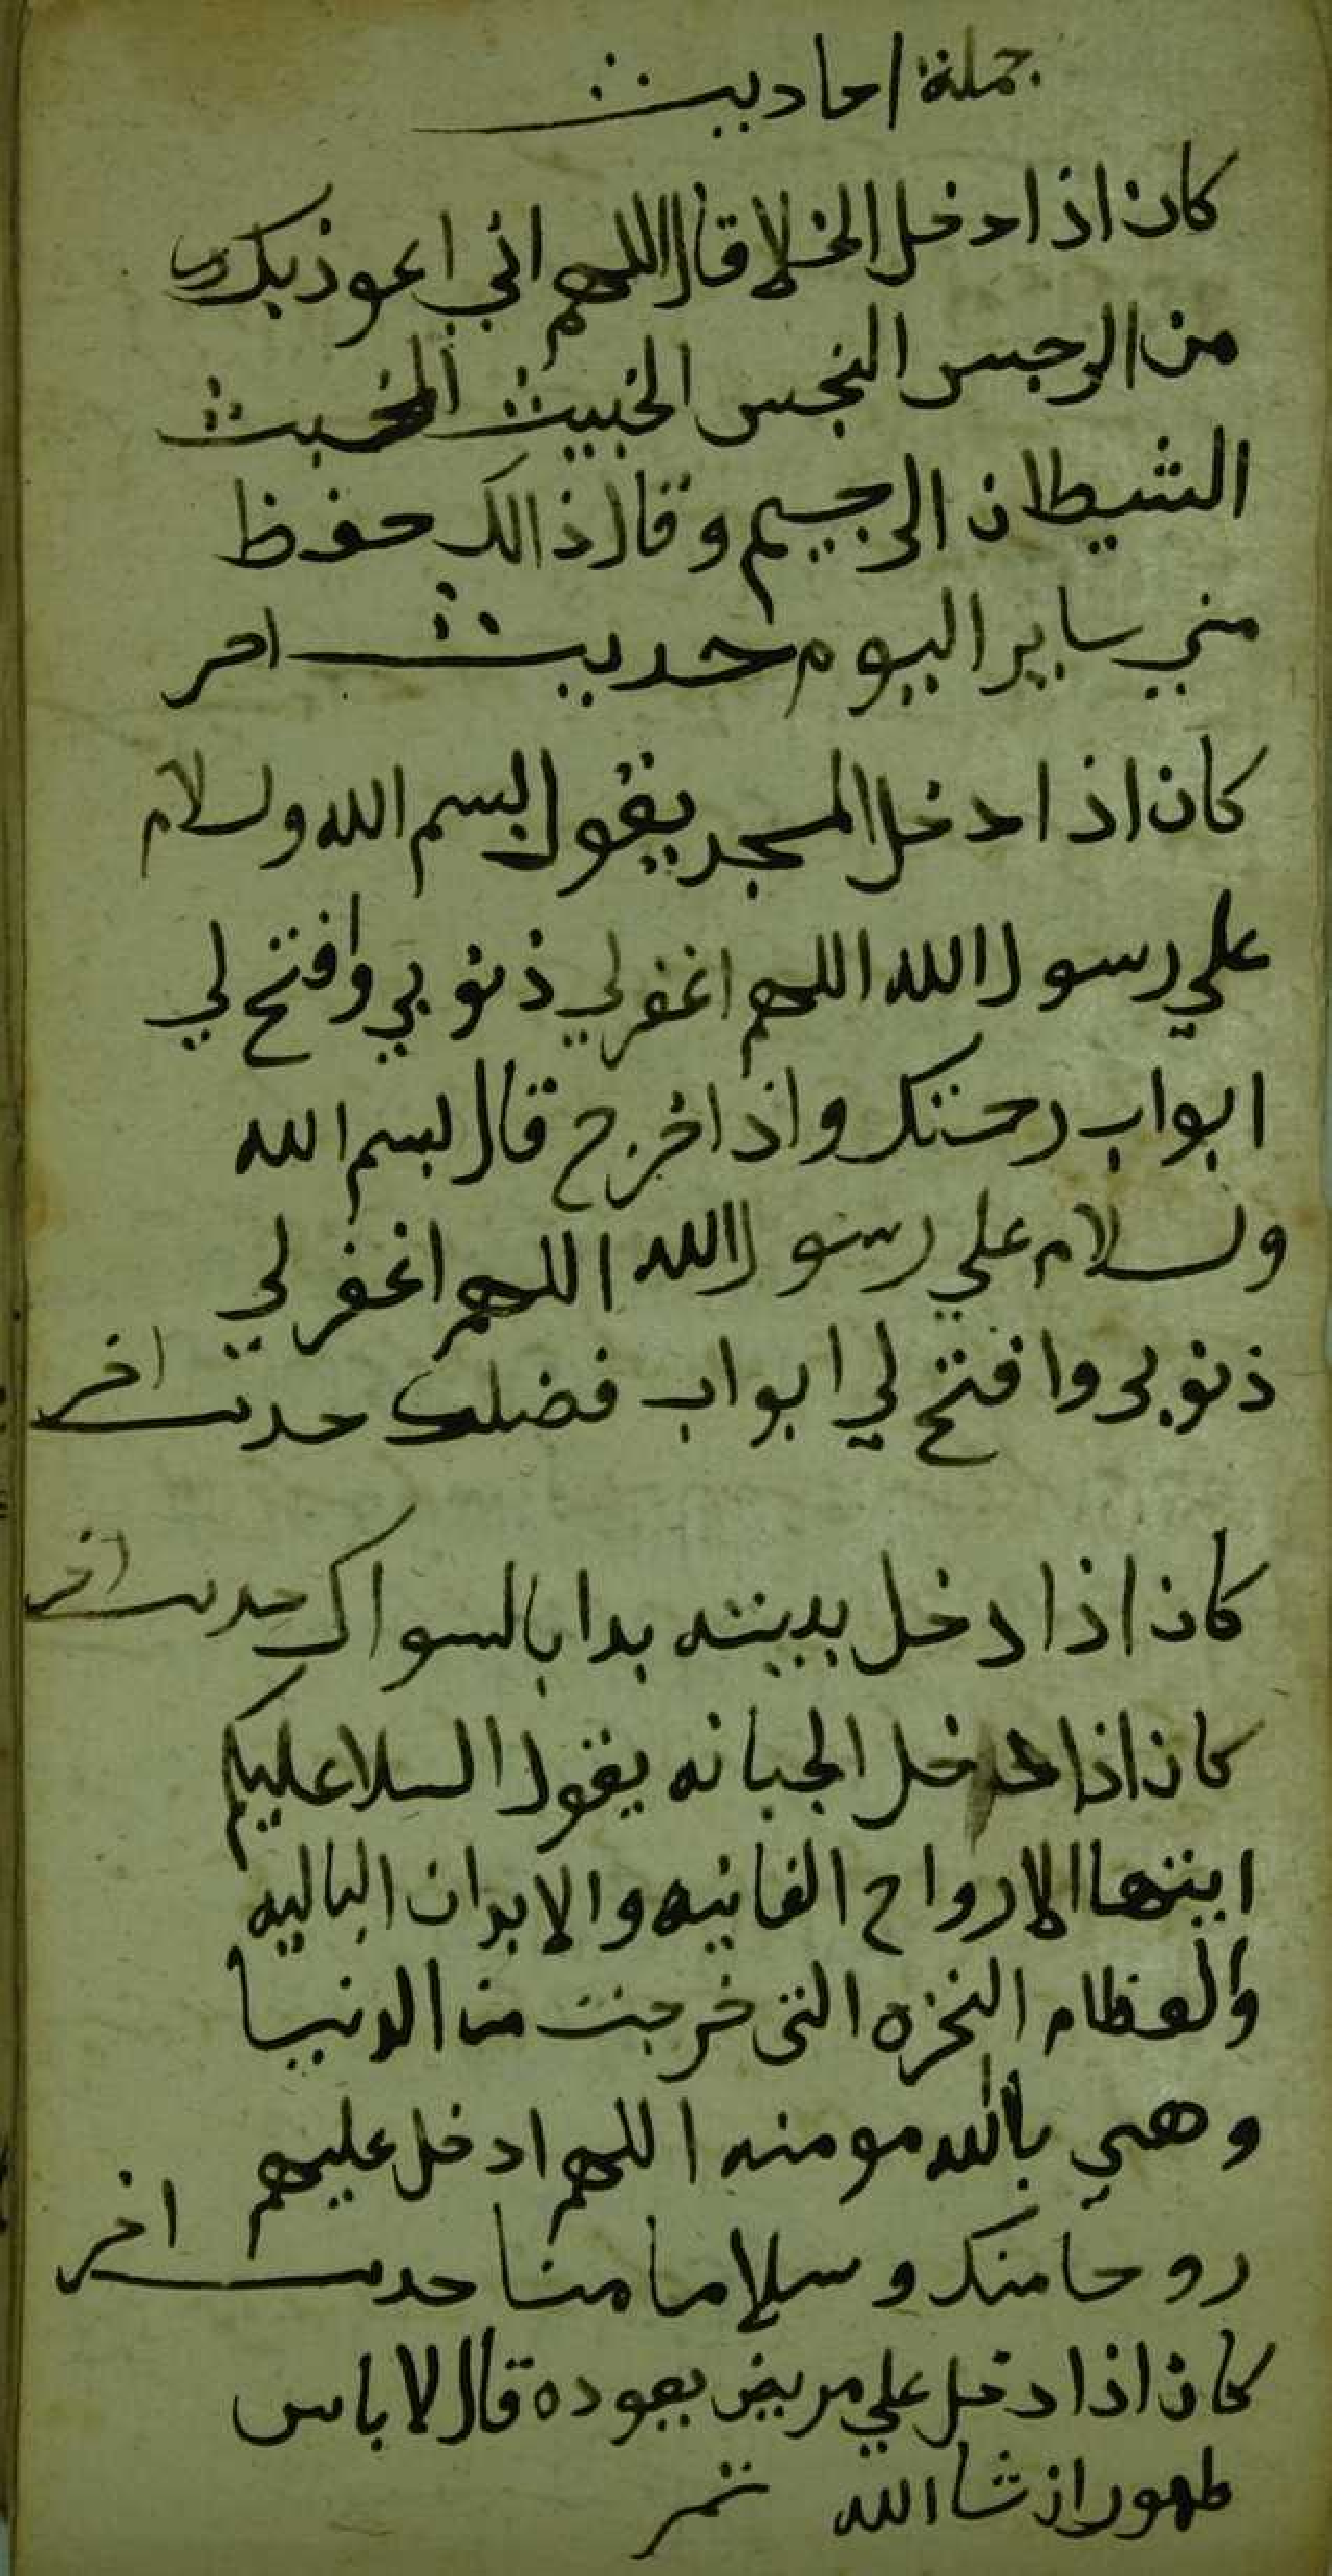 جملة احاديث
كان اذا دخل الخلا قال اللهم اني اعوذ بك
من الرجس النجس الخبيث المخبث
الشيطان الرجيم وقال ذالك حفظ
مني ساير اليوم حديث اخر
كان اذا دخل المسجد يقول بسم الله ولسلام
علي رسول الله اللهم اغفرلي ذنوبي وافتح لي
ابواب رحمتك واذا خرج قال بسم الله
ولسلام علي رسول الله اللهم اغفر لي
ذنوبي وافتح لي ابواب فضلك حديث اخر
كان اذا دخل بيته بدا بالسواك حديث اخر
كان اذا دخل الجبانه يقول السلا عليكم
ايتها الارواح الفانيه والابدان الباليه
والعظام النخره التي خرجت من الدنيا
وهي بالله مومنه اللهم ادخل عليهم
روحا منك وسلاما منا حديث اخر
كان اذا دخل علي مريض يعوده قال لا باس
طهور ان شا الله تمر